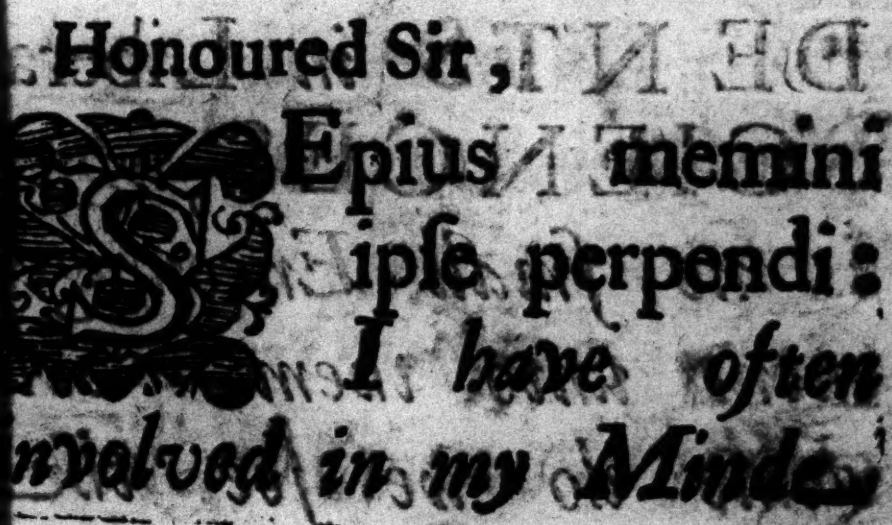 Honoured Sir,
SEpius memini
ipſe perpendi:
I have often
nvolved in my Minde